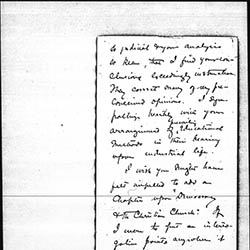 so judicial & your analysis
so keen, that I find your con-
clusions exceedingly instructive.
They correct many of my pre-
conceived opinions. I sym-
pathize heartily with your
arraignment of Educational
methods in their bearing
upon industrial life.
I wish you might have
felt impelled to add an
Chapter upon "Democracy
& the Christian Church". If
I were to put an inter-
rogation point anywhere it